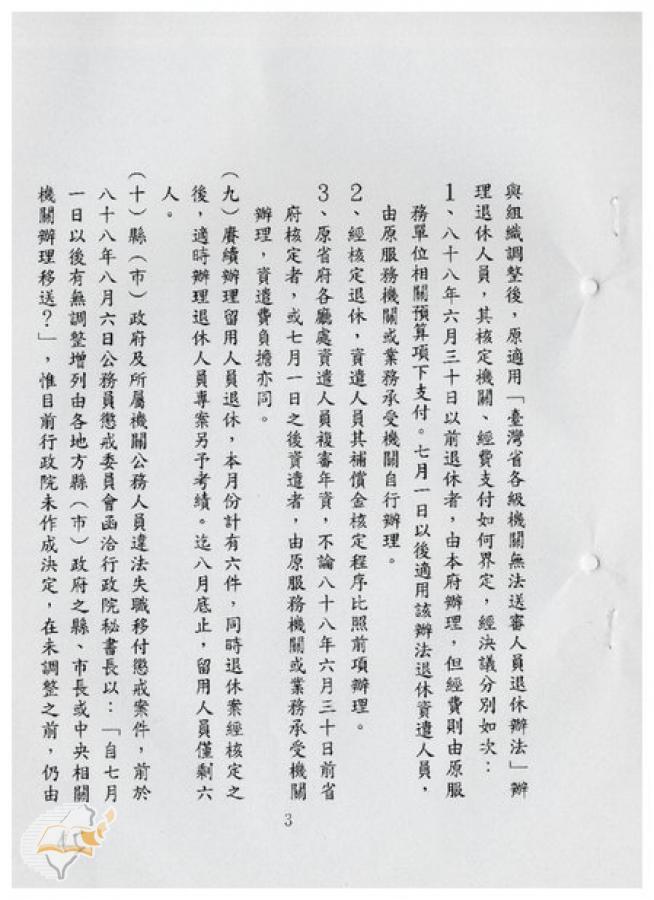 與組織調整後，原適用「臺灣省各級機關無法送審人員退休辦法」辦
理退休人員，其核定機關、經費支付如何界定，經決議分別如次：
1、八十八年六月三十日以前退休者，由本府辦理，但經費則由原服
務單位相關預算項下支付。七月一日以後適用該辦法退休資遣人員，
由原服務機關或業務承受機關自行辦理。
2、經核定退休，資遣人員其補償金核定程序比照前項辦理。
3、原省府各廳處資遣人員複審年資，不論八十八年六月三十日前省
府核定者，或七月一日之後資遣者，由原服務機關或業務承受機關
辦理，資遣費負擔亦同。
（九）賡續辦理留用人員退休，本月份計有六件，同時退休案經核定之
後，適時辦理退休人員專案另予考績。迄八月底止，留用人員僅剩六
人。
（十）縣（市）政府及所屬機關公務人員違法失職移付懲戒案件，前於
八十八年八月六日公務員懲戒委員會函洽行政院秘書長以：「自七月
一日以後有無調整增列由各地方縣（市）政府之縣、市長或中央相關
機關辦理移送？」，惟目前行政院未作成決定，在未調整之前，仍由
3